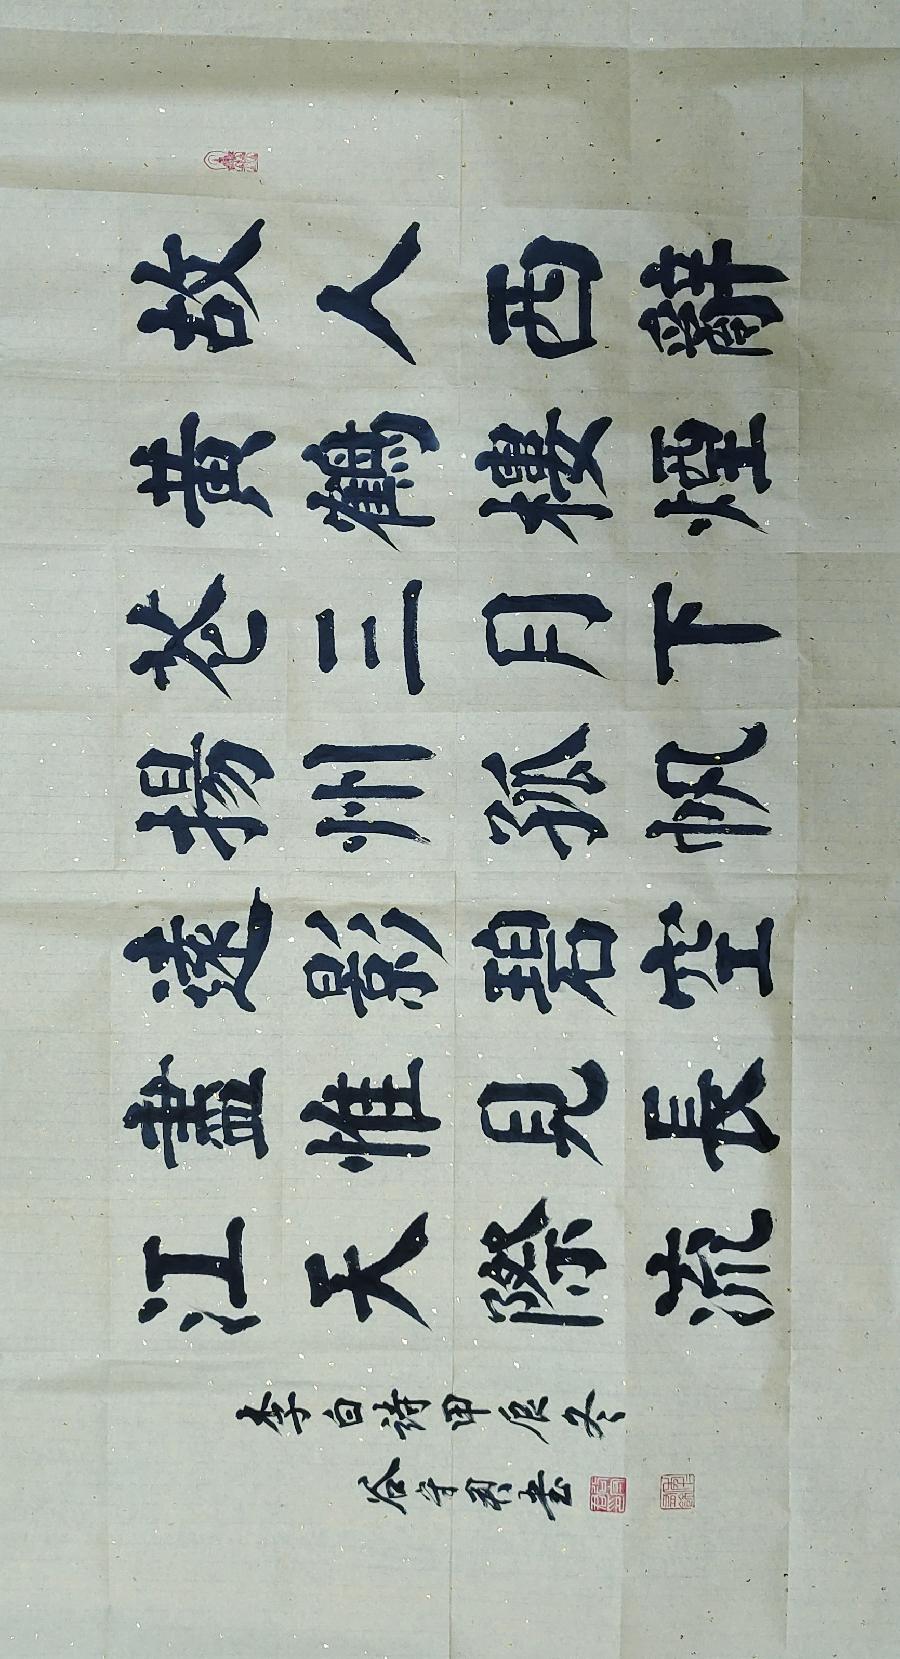 故人西辭
黄鶴樓煙
花三月下
揚州孤帆
遠影碧空
盡惟見長
江天際流
李白詩甲辰冬
谷書